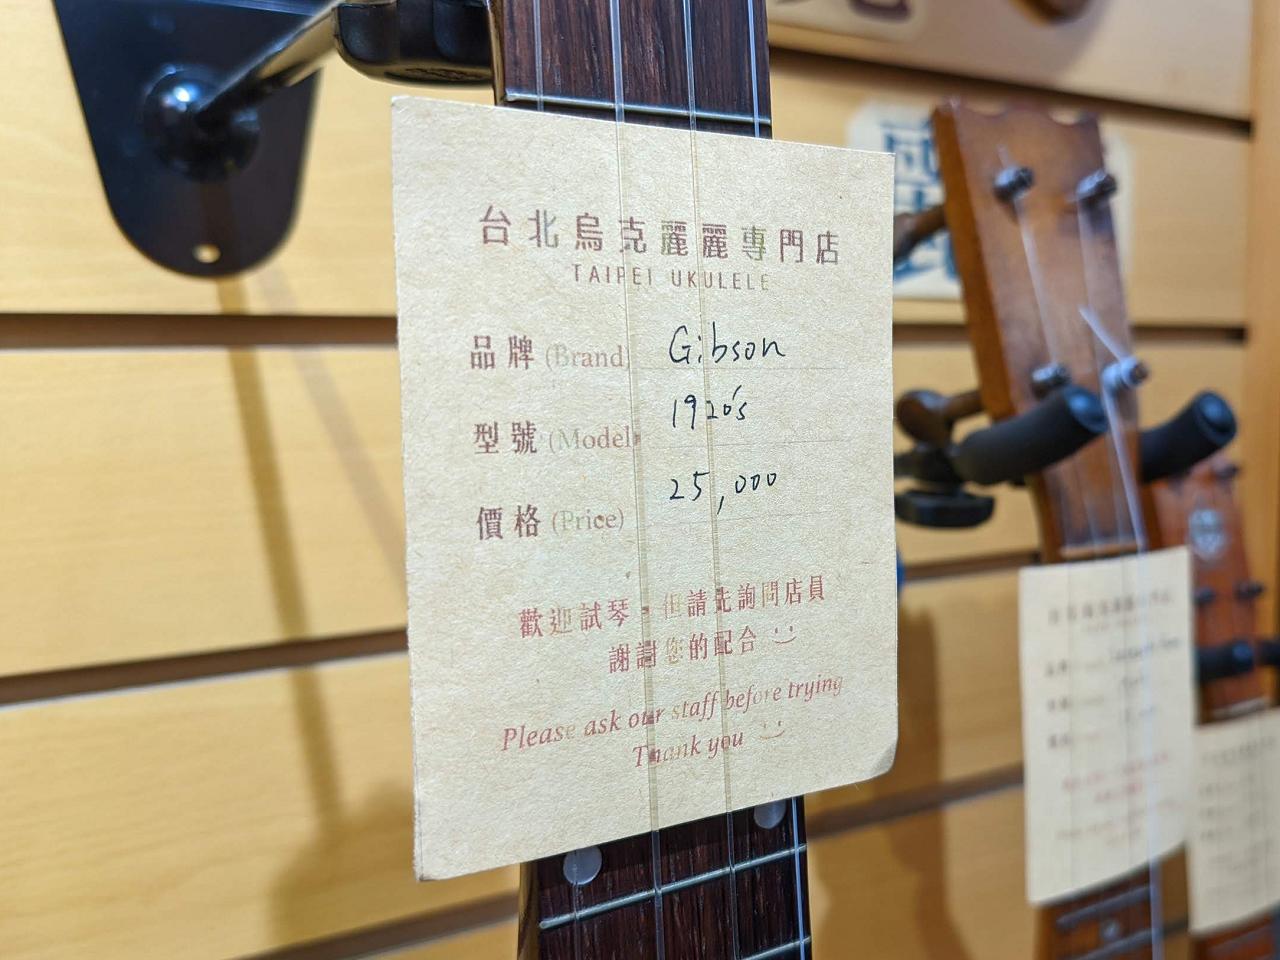 台北烏克麗麗專門店
TAIPEI UKULELE
品牌 (Brand) Gibson
型號 (Model) 1920's
價格 (Price) 25,000
歡迎試琴，但請先詢問店員
謝謝您的配合
Please ask our staff before trying
Thank you